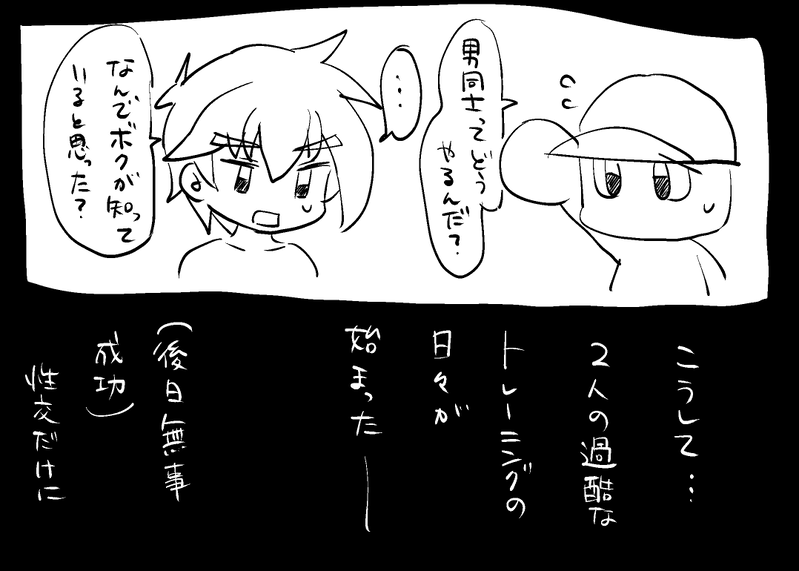 男同士ってどう
やるんだ?
…
なんでボクが知って
いると思った?
こうして…
2人の過酷な
トレーニングの
日々が
始まった―
(後日無事
成功)
性交だけに